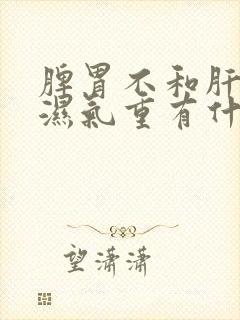 脾胃不和肝
濕氣重有什
望瀟瀟